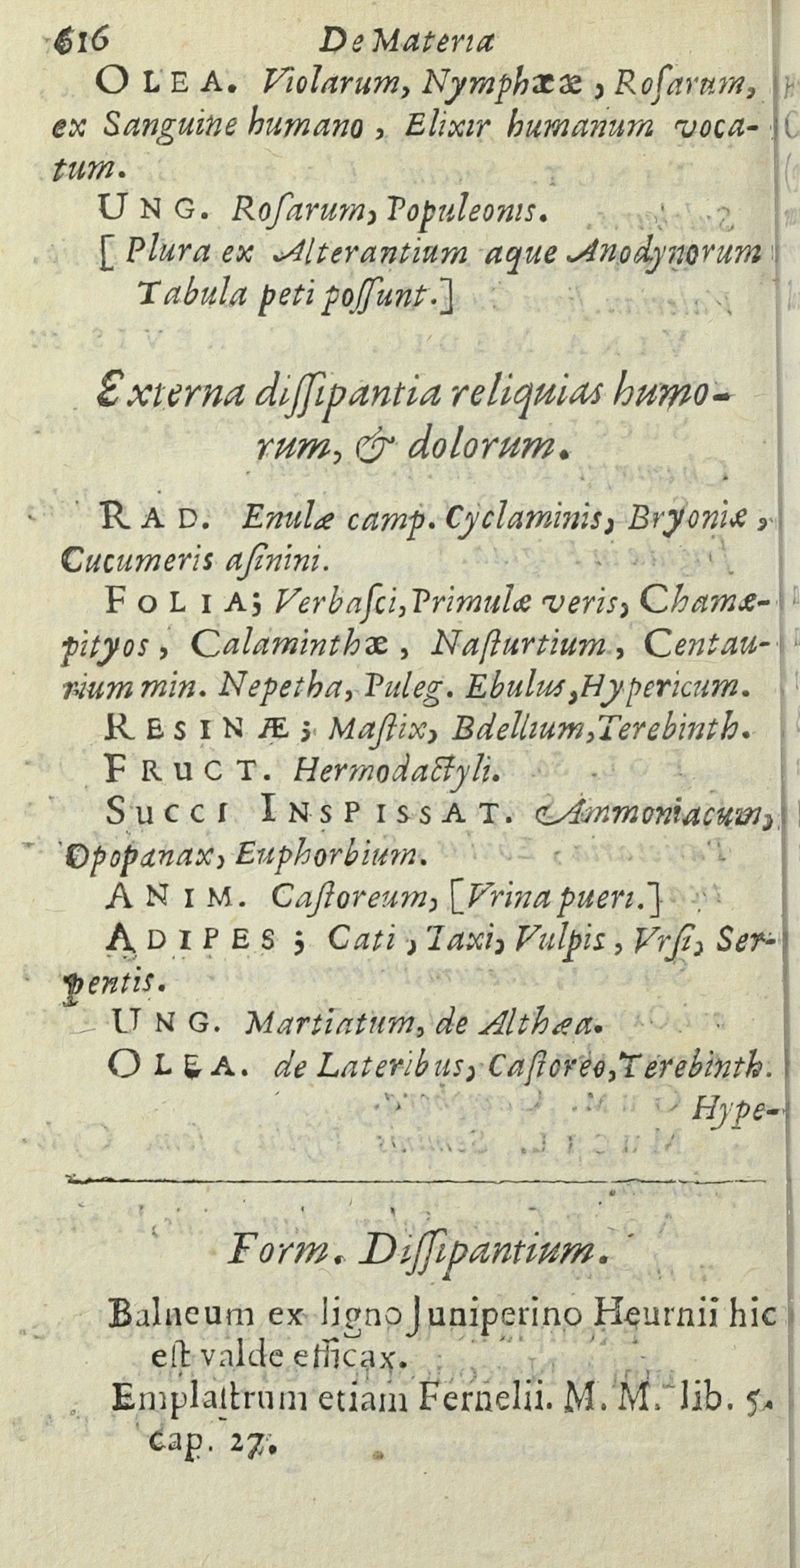 616 De Materia
OLEA. Violarum, Nymphææ, Roſarum,
ex Sanguine humano, Elixir humanum voca-
tum.
UNG. Roſarum, Populeonis.
[Plura ex Alterantium aque Anodynorum
Tabula peti poſſunt.]
Externa diſſipantia reliquias humo-
rum, & dolorum.
RAD. Enulæ camp. Cyclaminis, Bryoniæ,
Cucumeris aſinini.
FOLIA; Verbaſci, Primulæ veris, Chamæ-
pityos, Calaminthæ, Naſturtium, Centau-
rium min. Nepetha, Puleg. Ebulus, Hypericum.
RESINÆ; Maſtix, Bdellium, Terebinth.
FRUCT. Hermodactyli.
SUCCI INSPISSAT. Ammoniacum,
Opopanax, Euphorbium.
ANIM. Caſtoreum, [Vrina pueri.]
ADIPES; Cati, Taxi, Vulpis, Vrſi, Ser-
pentis.
UNG. Martiatum, de Althæa.
OLEA. de Lateribus, Caſtoreo, Terebinth.
Hype-
Form. Diſſipantium.
Balneum ex ligno Juniperino Heurnii hic
eſt valde efficax.
Emplaſtrum etiam Fernelii. M. M. lib. 5.
cap. 27.